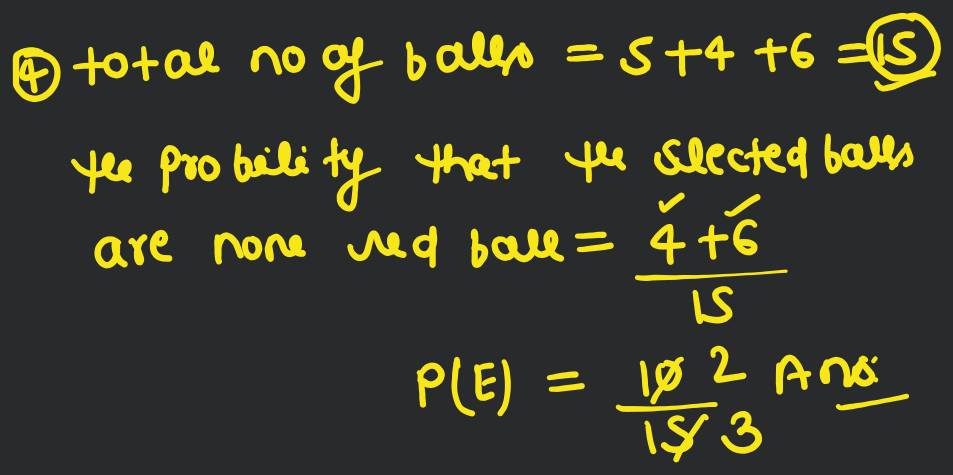 ④ total no of balls = 5+4+6 = 15
the probability that the slected balls
are none red ball = 4+6
15
P(E) = 10 2 Ans
15 3